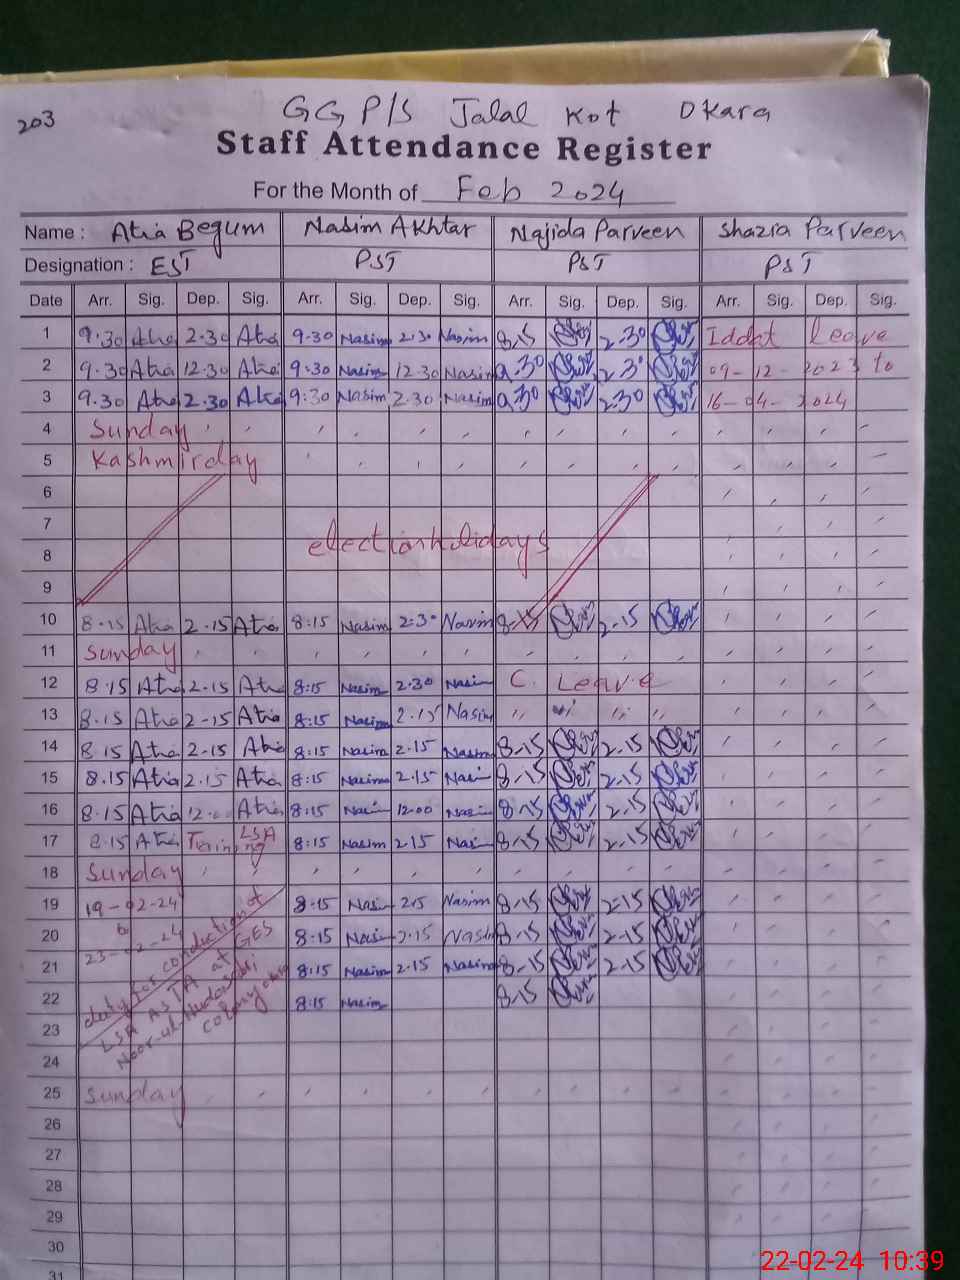 203
GGP/S Jalal Kot Okara
Staff Attendance Register
For the Month of Feb 2024
Name : Atia Begum Nasim Akhtar Najida Parveen Shazia Parveen
Designation : EST PST PST PST
Date Arr. Sig. Dep. Sig. Arr. Sig. Dep. Sig. Arr. Sig. Dep. Sig. Arr. Sig. Dep. Sig.
1 9.30 Atia 2.30 Atia 9.30 Nasim 2.30 Nasim 8-15 2-30 Iddat Leave
2 9.30 Atia 12.30 Atia 9:30 Nasim 12.30 Nasim 9.30 2.30 09-12-2023 to
3 9.30 Atia 2.30 Atia 9:30 Nasim 2.30 Nasim 9.30 2.30 16-04-2024
4 Sunday
5 Kashmirday
6
7
election holidays
8
9
10 8.15 Atia 2.15 Atia 8:15 Nasim 2:30 Nasim 8-15 2-15
11 Sunday
12 8.15 Atia 2.15 Atia 8:15 Nasim 2.30 Nasim C. Leave
13 8.15 Atia 2-15 Atia 8:15 Nasim 2.15 Nasim " " " "
14 8.15 Atia 2-15 Atia 8:15 Nasim 2.15 Nasim 8-15 2-15
15 8.15 Atia 2.15 Atia 8:15 Nasim 2.15 Nasim 8-15 2.15
16 8.15 Atia 12.00 Atia 8:15 Nasim 12.00 Nasim 8-15 2.15
17 8.15 Atia Traning LSA 8:15 Nasim 2.15 Nasim 8-15 2.15
18 Sunday
19 19-02-24 8:15 Nasim 2.15 Nasim 8-15 2-15
20 to 8:15 Nasim 2.15 Nasim 8-15 2-15
23-02-24
21 8:15 Nasim 2.15 Nasim 8-15 2-15
22 8:15 Nasim 8-15
duty for conduction of
LSA ASTA at GES
Colony
23
24
25 Sunday
26
27
28
29
30
31
22-02-24 10:39